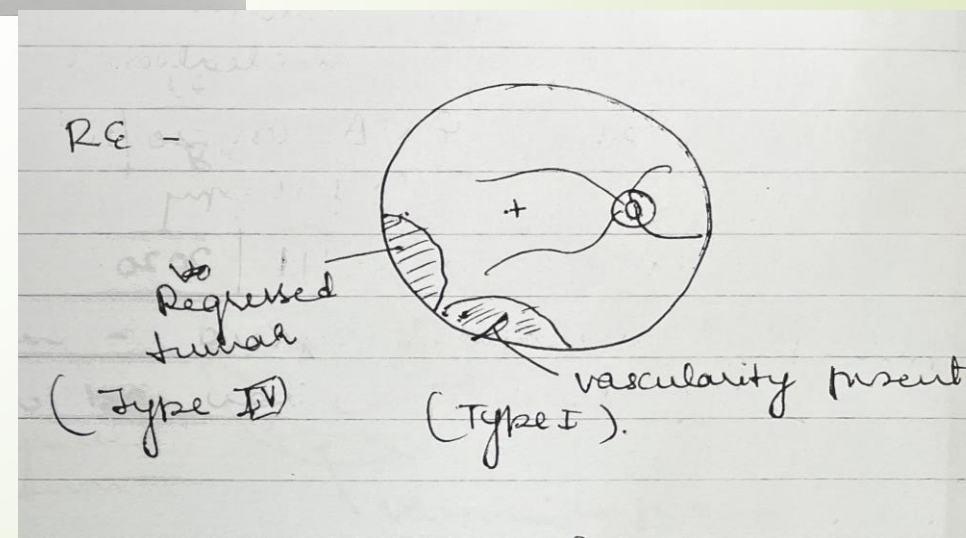 RE -
Regressed
tumor
(Type IV)
vascularity present
(Type I).